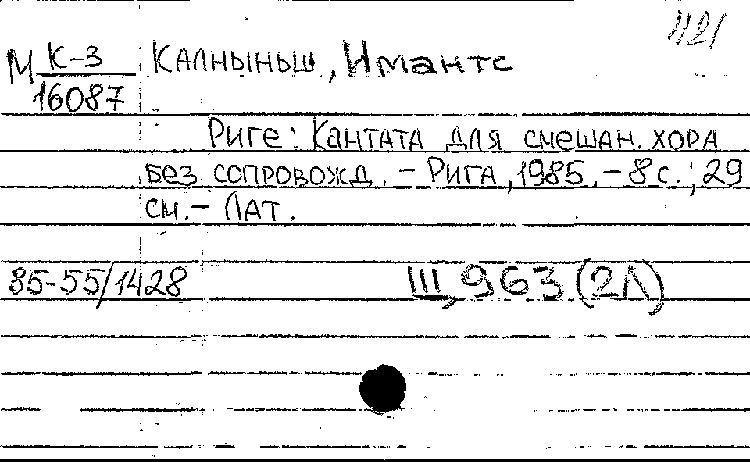 М К-3 Калныньш, Имантс
16087
Риге: Кантата для смешан. хора
без сопровожд. - Рига, 1985. - 8 с.; 29
см. - Лат.
85-55/1428 Щ963(2Л)